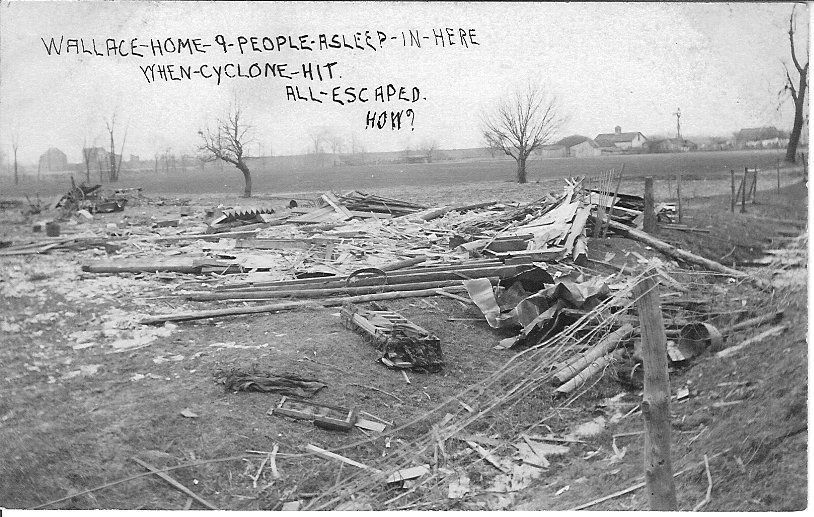 WALLACE-HOME-9-PEOPLE-ASLEEP-IN-HERE
WHEN-CYCLONE-HIT.
ALL-ESCAPED.
HOW?